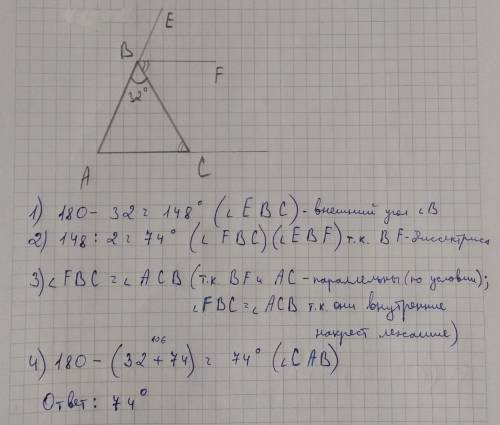 E
B
F
32°
A
C
1) 180 - 32 = 148° (∠EBC) - внешний угол ∠B
2) 148 : 2 = 74° (∠FBC) (∠EBF) т.к. BF-биссектриса
3) ∠FBC = ∠ACB (т.к. BF и AC - параллельны (по условию);
∠FBC = ∠ACB т.к. они внутренние
накрест лежащие)
106
4) 180 - (32 + 74) = 74° (∠CAB)
Ответ: 74°